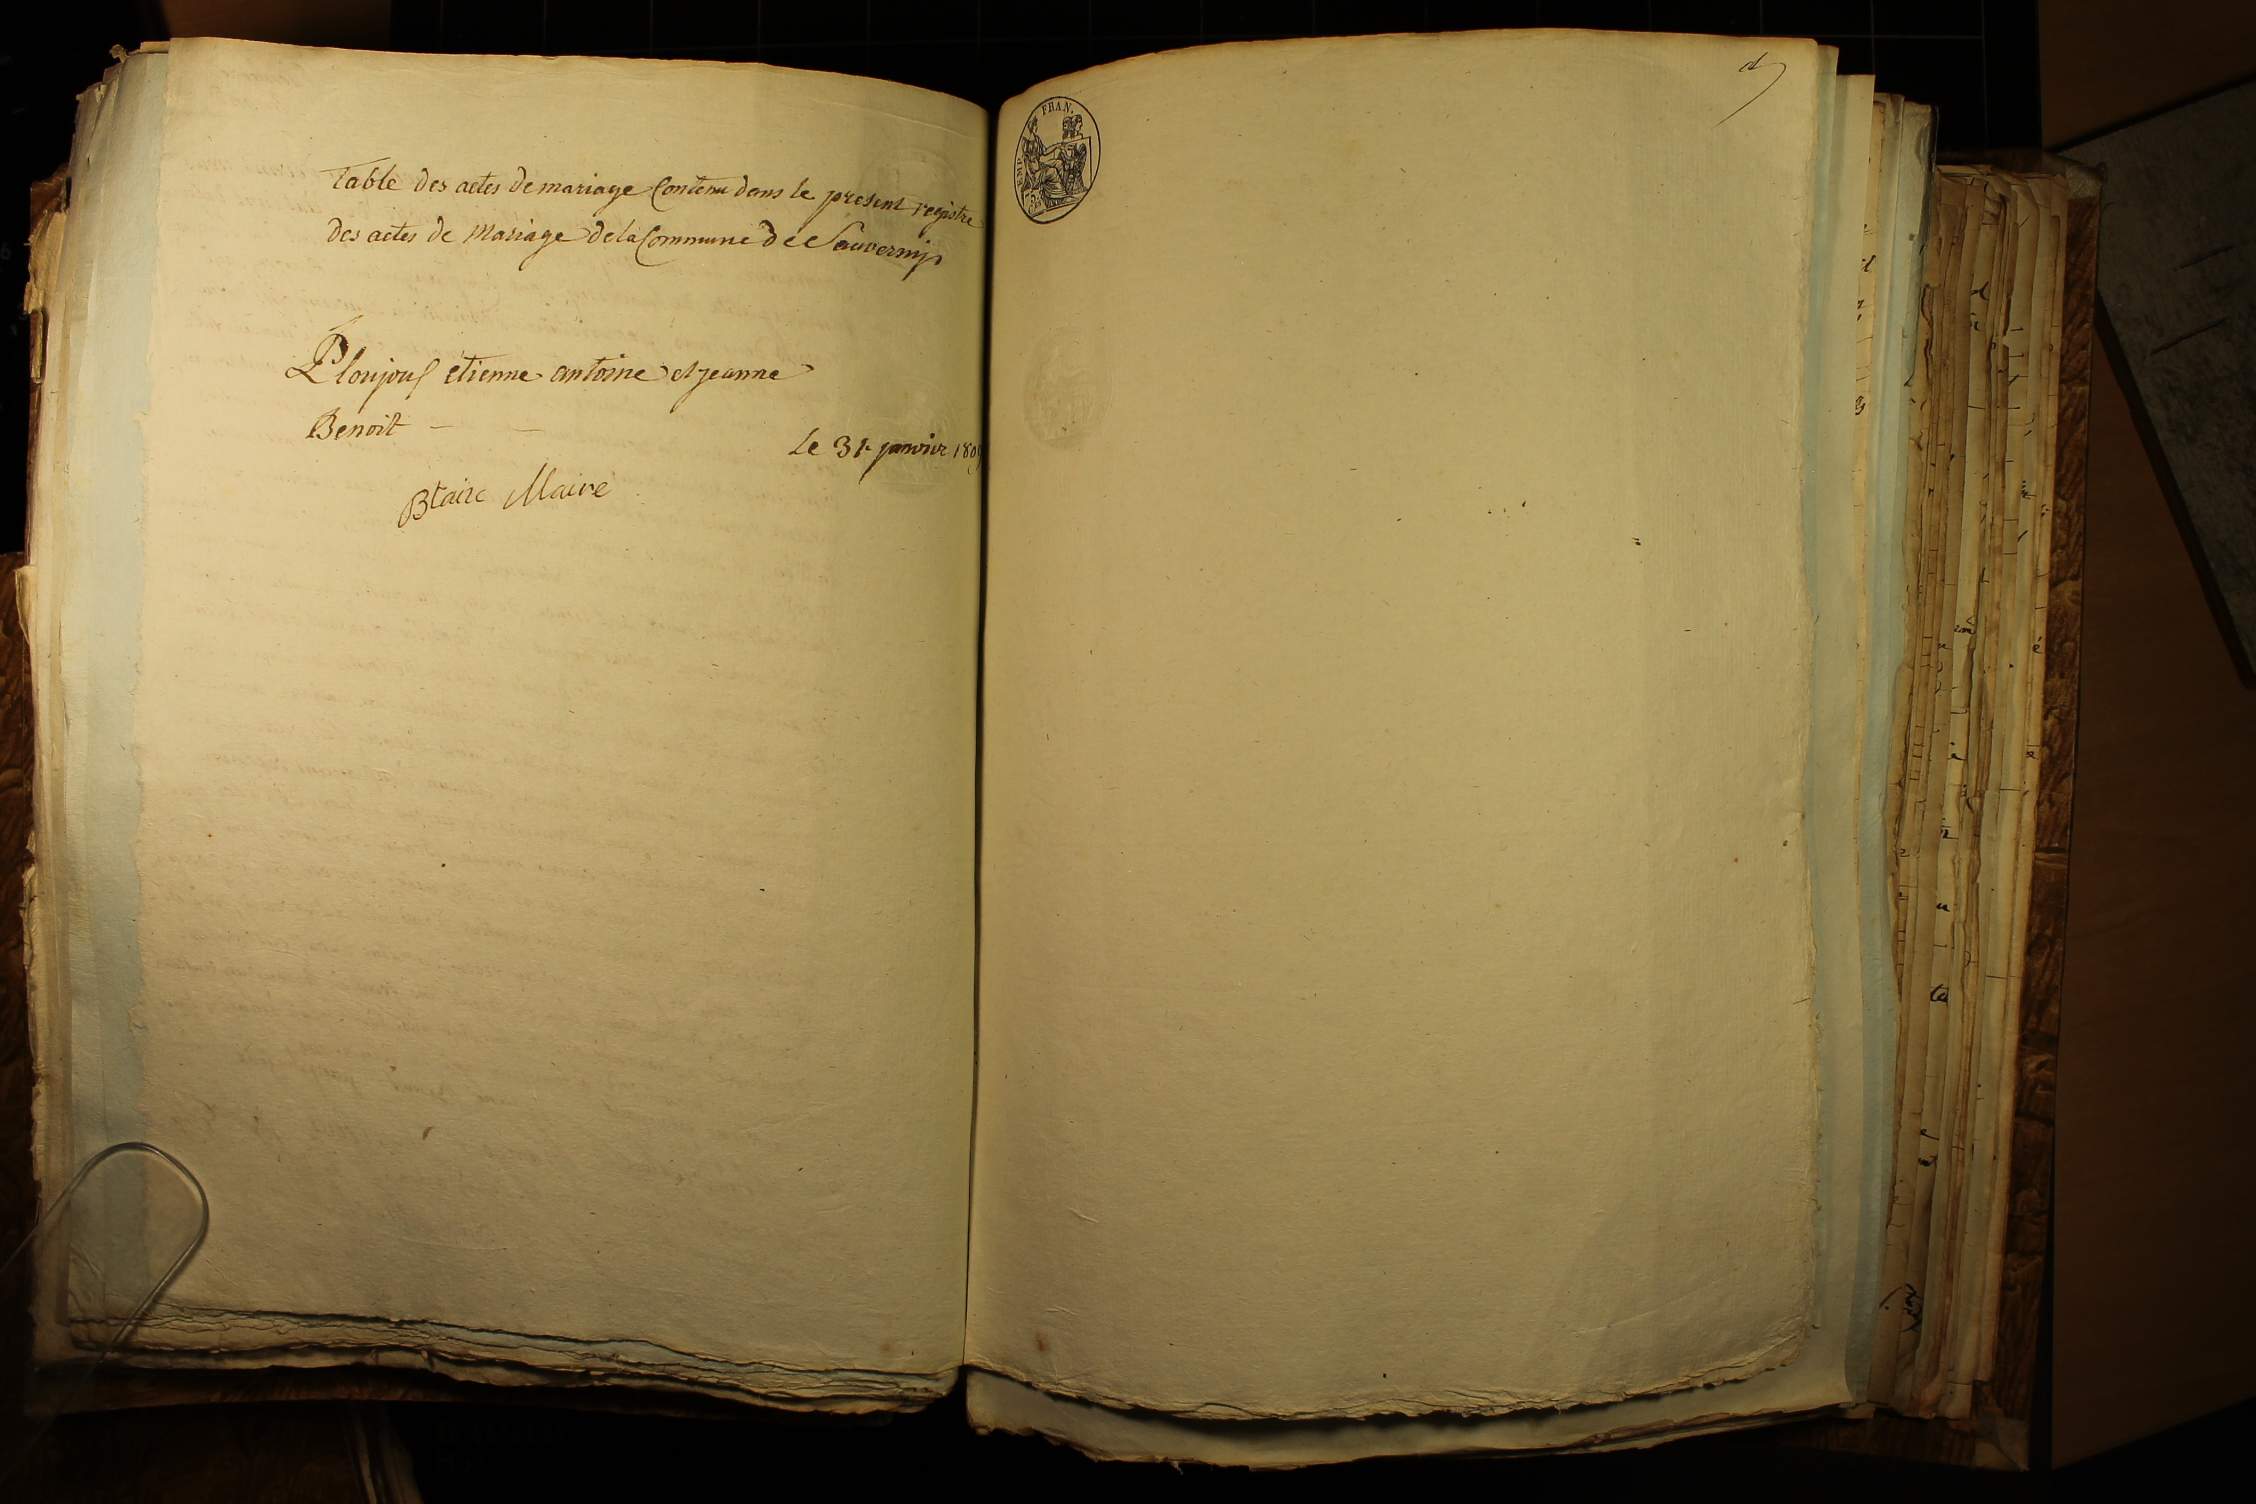 Table des actes de mariage Contenu dans le present registre
des actes de Mariage de la Commune de Sauverny
Ploujoux etienne antoine et jeanne
Benoit - -
Le 31 janvier 180
Blaire Maire
EMP. FRAN.